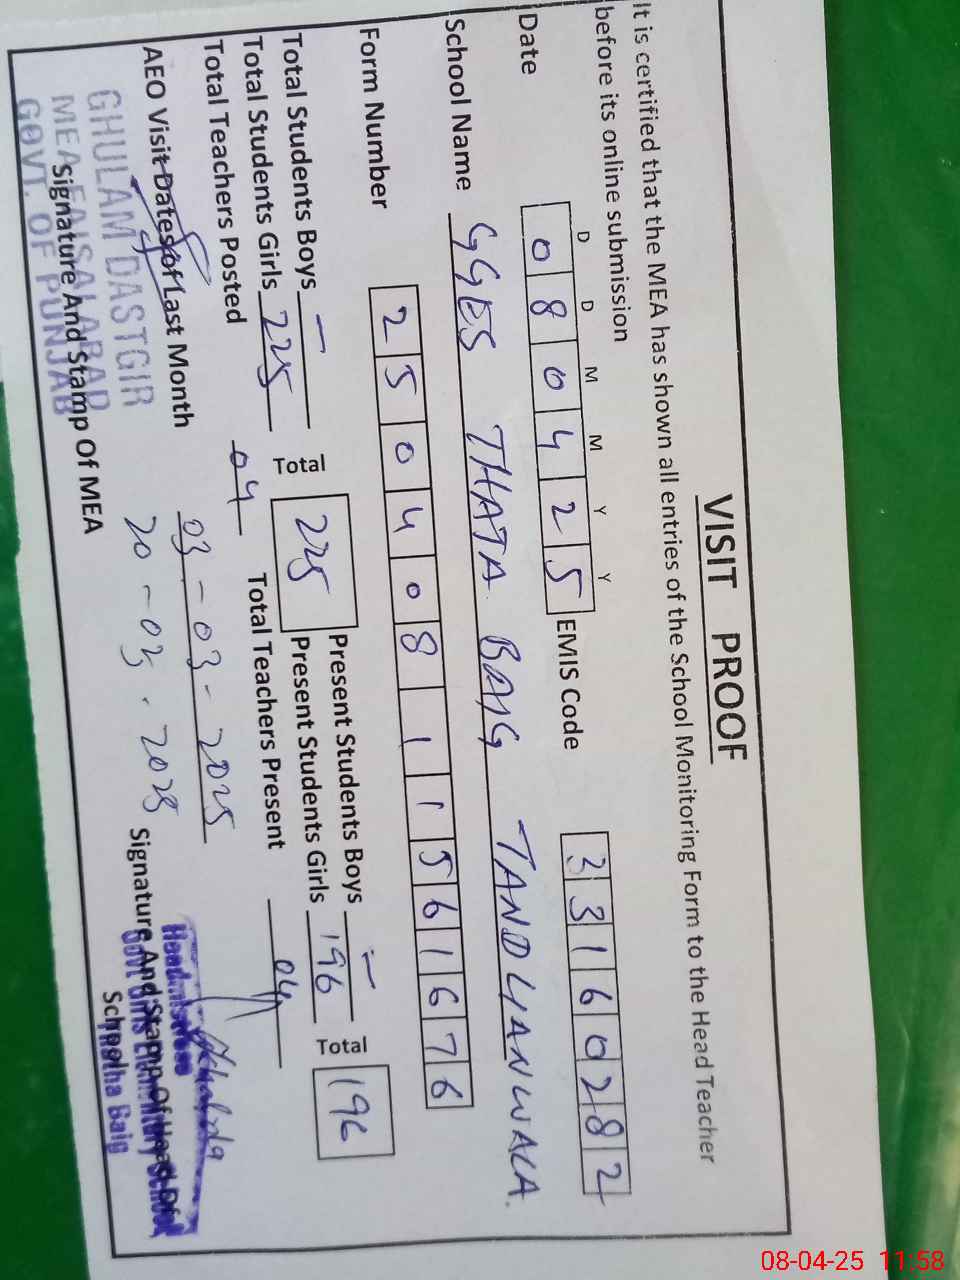 VISIT PROOF
It is certified that the MEA has shown all entries of the School Monitoring Form to the Head Teacher
before its online submission
D D M M Y Y
Date 0 8 0 4 2 5 EMIS Code 3 3 1 6 0 2 8 2
School Name GGES THATA BAIG TANDLIANWALA.
Form Number 2 5 0 4 0 8 1 1 5 6 1 6 7 6
Total Students Boys — Total 225 Present Students Boys — Total 196
Total Students Girls 225 Present Students Girls 196
Total Teachers Posted 04 Total Teachers Present 04
AEO Visit Dates of Last Month 03-03-2025
20-03-2025
GHULAM DASTGIR
MEA FAISALABAD
GOVT. OF PUNJAB
Signature And Stamp Of MEA
Headmistress
Govt Girls Elementary School
Thatha Baig
Signature And Stamp Of Head Of
School
08-04-25 11:58